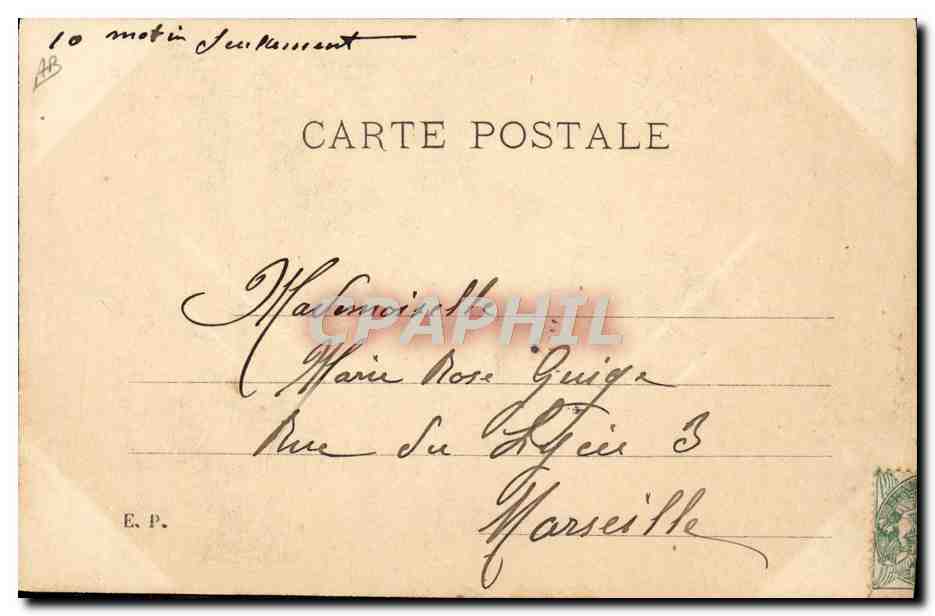 10 motin seulement
AB
CARTE POSTALE
Mademoiselle
CPAPHIL
Marie Rose Guige
Rue du Lycée 3
E. P.
Marseille